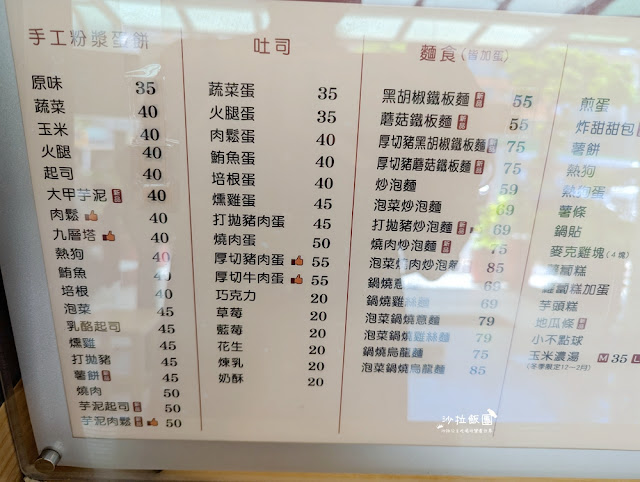 手工粉漿蛋餅
原味 35
蔬菜 40
玉米 40
火腿 40
起司 40
大甲芋泥 40
肉鬆 40
九層塔 40
熱狗 40
鮪魚 40
培根 40
泡菜 45
乳酪起司 45
燻雞 45
打拋豬 45
薯餅 45
燒肉 50
芋泥起司 50
芋泥肉鬆 50
吐司
蔬菜蛋 35
火腿蛋 35
肉鬆蛋 40
鮪魚蛋 40
培根蛋 40
燻雞蛋 45
打拋豬肉蛋 45
燒肉蛋 50
厚切豬肉蛋 55
厚切牛肉蛋 55
巧克力 20
草莓 20
藍莓 20
花生 20
煉乳 20
奶酥 20
麵食(皆加蛋)
黑胡椒鐵板麵 55
蘑菇鐵板麵 55
厚切豬黑胡椒鐵板麵 75
厚切豬蘑菇鐵板麵 75
炒泡麵 59
泡菜炒泡麵 69
打拋豬炒泡麵 69
燒肉炒泡麵 75
泡菜燒肉炒泡麵 85
鍋燒意麵 69
鍋燒雞絲麵 69
泡菜鍋燒意麵 79
泡菜鍋燒雞絲麵 79
鍋燒烏龍麵 75
泡菜鍋燒烏龍麵 85
煎蛋
炸甜甜包
薯餅
熱狗
熱狗蛋
薯條
鍋貼
麥克雞塊(4塊)
蘿蔔糕
蘿蔔糕加蛋
芋頭糕
地瓜條
小不點球
玉米濃湯 M 35 L
(冬季限定12-2月)
沙拉飯團